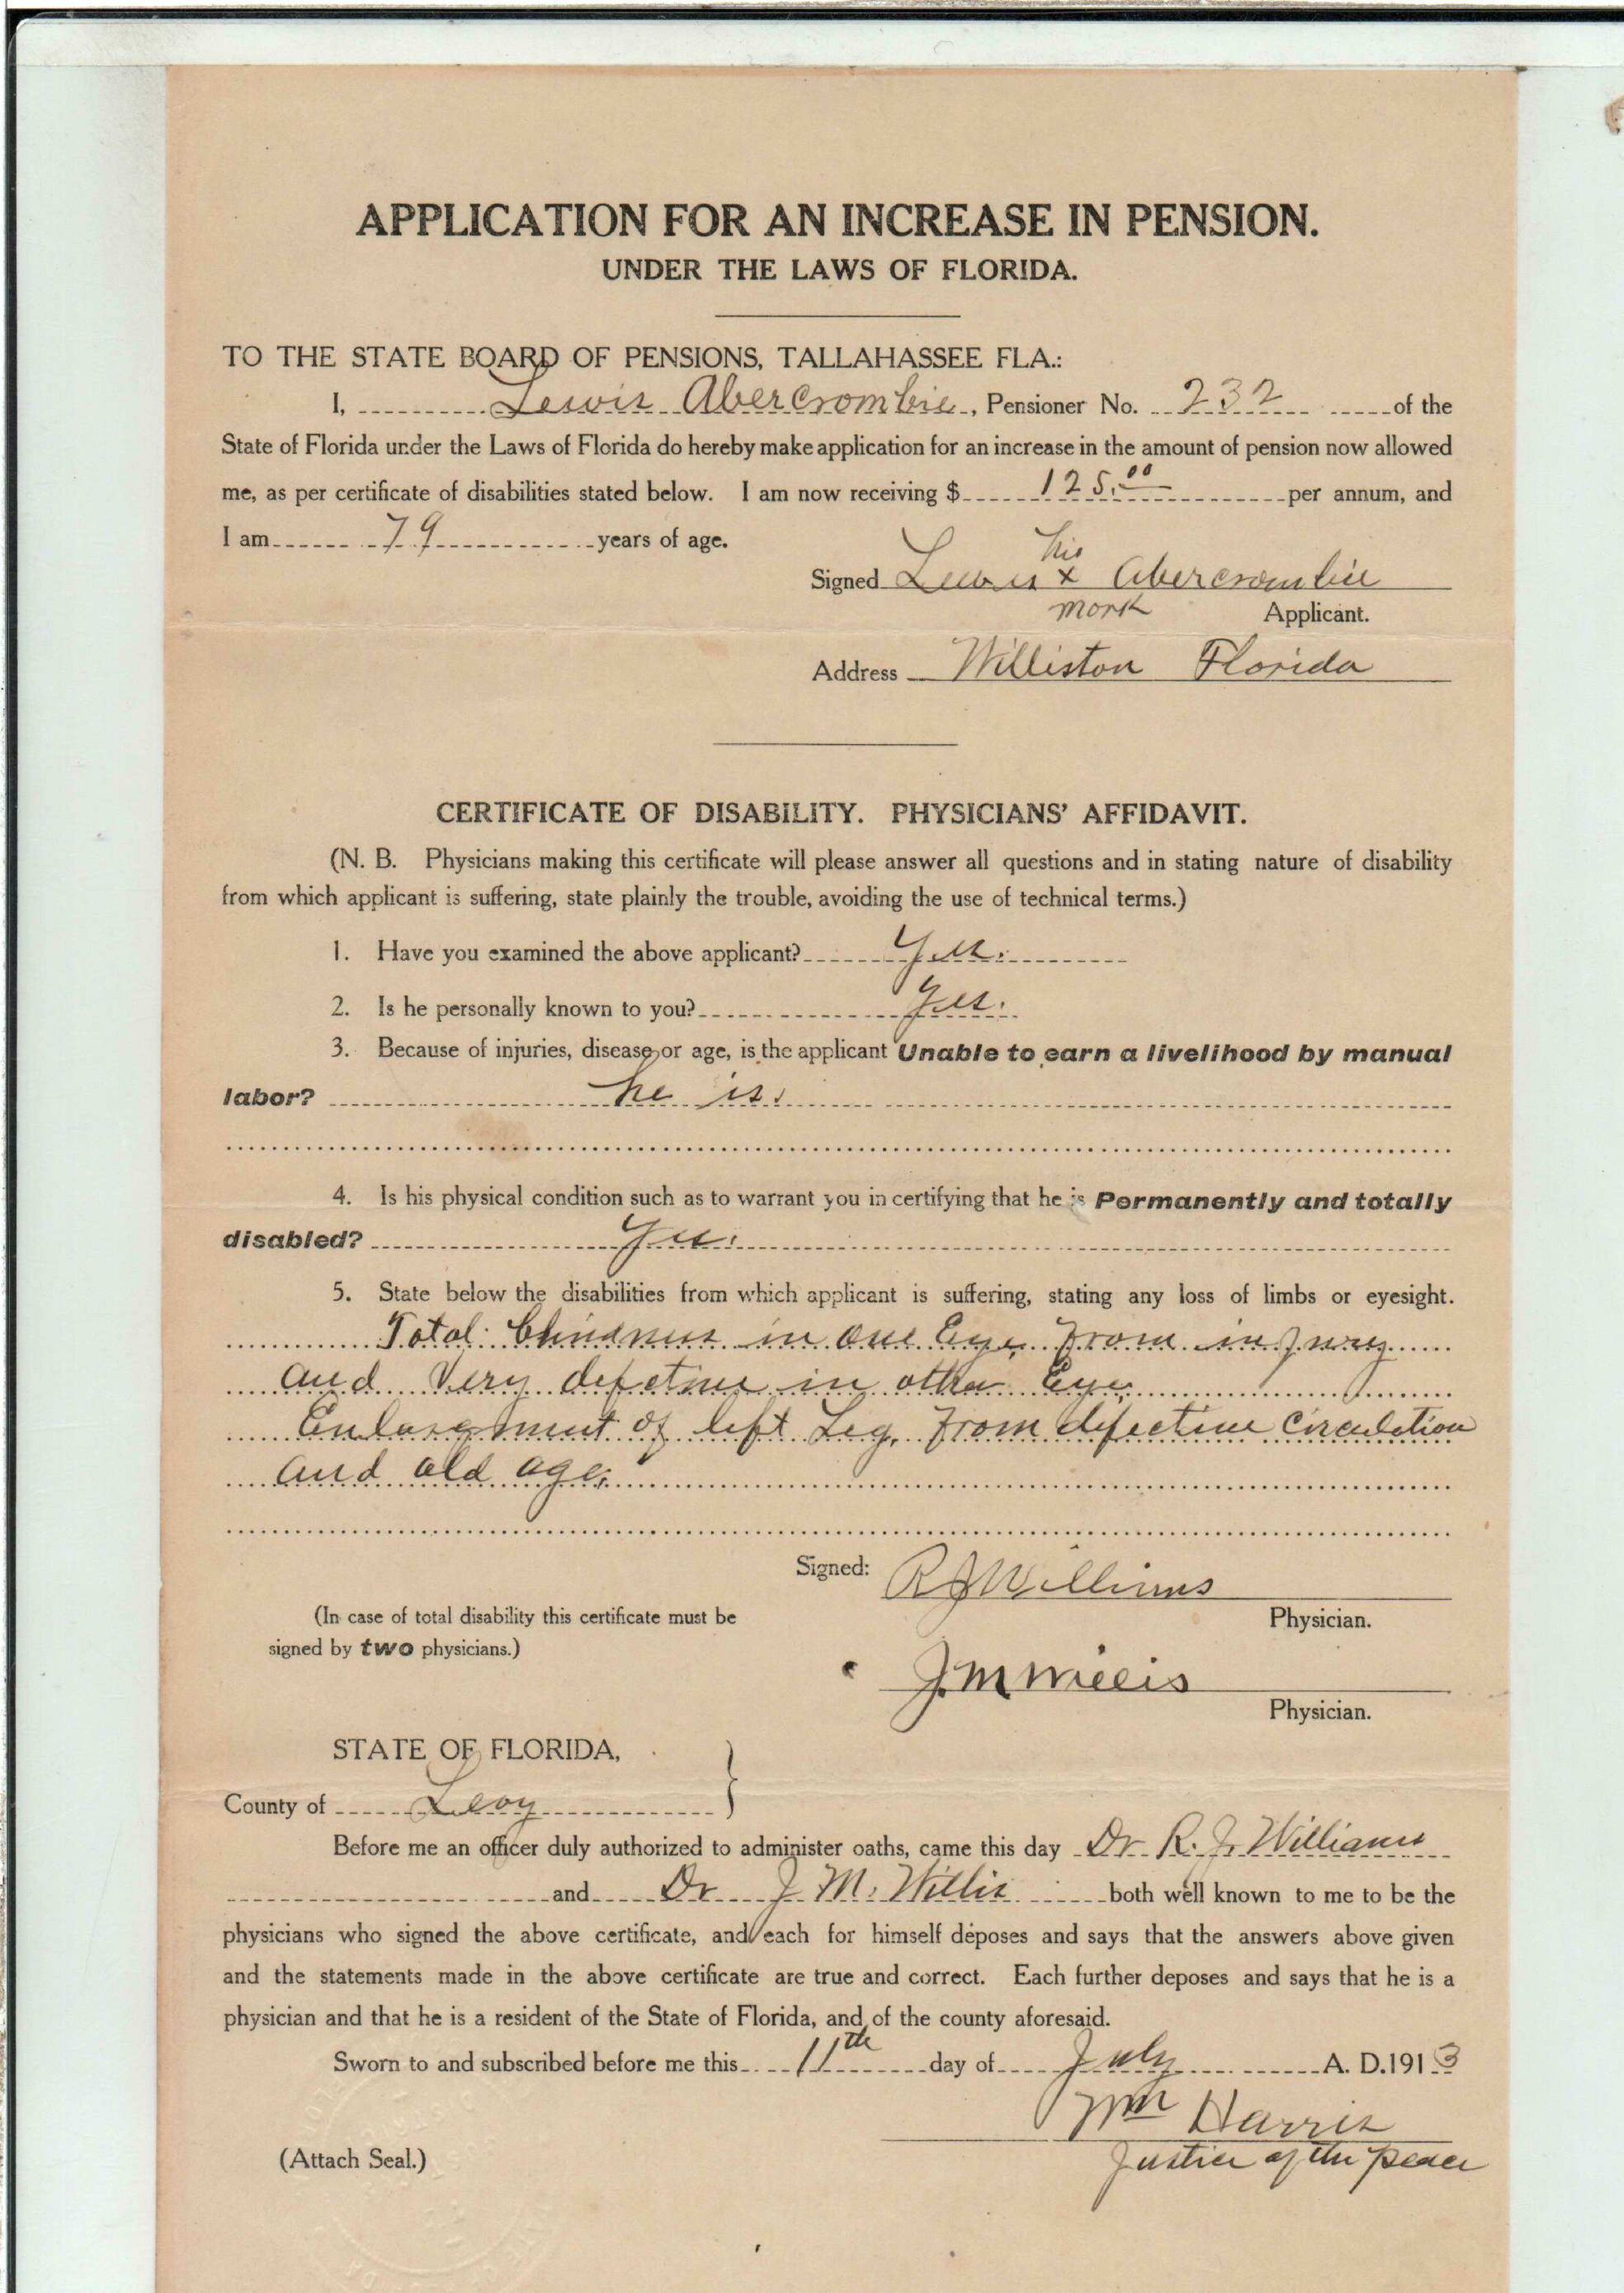 APPLICATION FOR AN INCREASE IN PENSION.
UNDER THE LAWS OF FLORIDA.
TO THE STATE BOARD OF PENSIONS, TALLAHASSEE FLA.:
I, Lewis Abercrombie, Pensioner No. 232 of the
State of Florida under the Laws of Florida do hereby make application for an increase in the amount of pension now allowed
me, as per certificate of disabilities stated below. I am now receiving $ 125.00 per annum, and
I am 79 years of age.
his
Signed Lewis x Abercrombie
mark Applicant.
Address Williston Florida
CERTIFICATE OF DISABILITY. PHYSICIANS' AFFIDAVIT.
(N. B. Physicians making this certificate will please answer all questions and in stating nature of disability
from which applicant is suffering, state plainly the trouble, avoiding the use of technical terms.)
1. Have you examined the above applicant? Yes.
2. Is he personally known to you? Yes.
3. Because of injuries, disease, or age, is the applicant Unable to earn a livelihood by manual
labor? he is.
4. Is his physical condition such as to warrant you in certifying that he is Permanently and totally
disabled? Yes.
5. State below the disabilities from which applicant is suffering, stating any loss of limbs or eyesight.
Total blindness in one Eye from injury
and Very defective in other Eye.
Enlargment of left Leg, from defective Circulation
and old age.
Signed: R J Williams
Physician.
(In case of total disability this certificate must be
signed by two physicians.)
J. M Willis
Physician.
STATE OF FLORIDA,
County of Levy
Before me an officer duly authorized to administer oaths, came this day Dr R. J. Williams
and Dr J M. Willis both well known to me to be the
physicians who signed the above certificate, and each for himself deposes and says that the answers above given
and the statements made in the above certificate are true and correct. Each further deposes and says that he is a
physician and that he is a resident of the State of Florida, and of the county aforesaid.
Sworn to and subscribed before me this 11th day of July A. D. 1913
Wm Harris
Justice of the peace
(Attach Seal.)